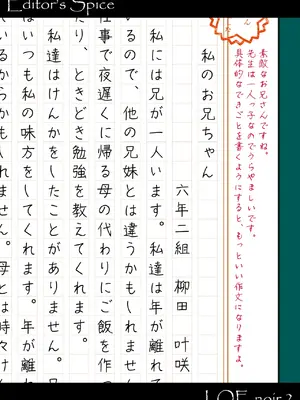 Editor's Spice
素敵なお兄さんですね。
先生は一人っ子なのでうらやましいです。
具体的なできごとを書くようにすると、もっといい作文になりますよ。
私のお兄ちゃん
六年二組 柳田 叶咲
私には兄が一人います。私達は年が離れて
いるので、他の兄妹とは違うかもしれませ
仕事で夜遅くに帰る母の代わりにご飯を作っ
たり、ときどき勉強を教えてくれます。
私達はけんかをしたことがありません。
はいつも私の味方をしてくれます。年が離れ
いるからかもしれません。母とは時々けん
noir 2